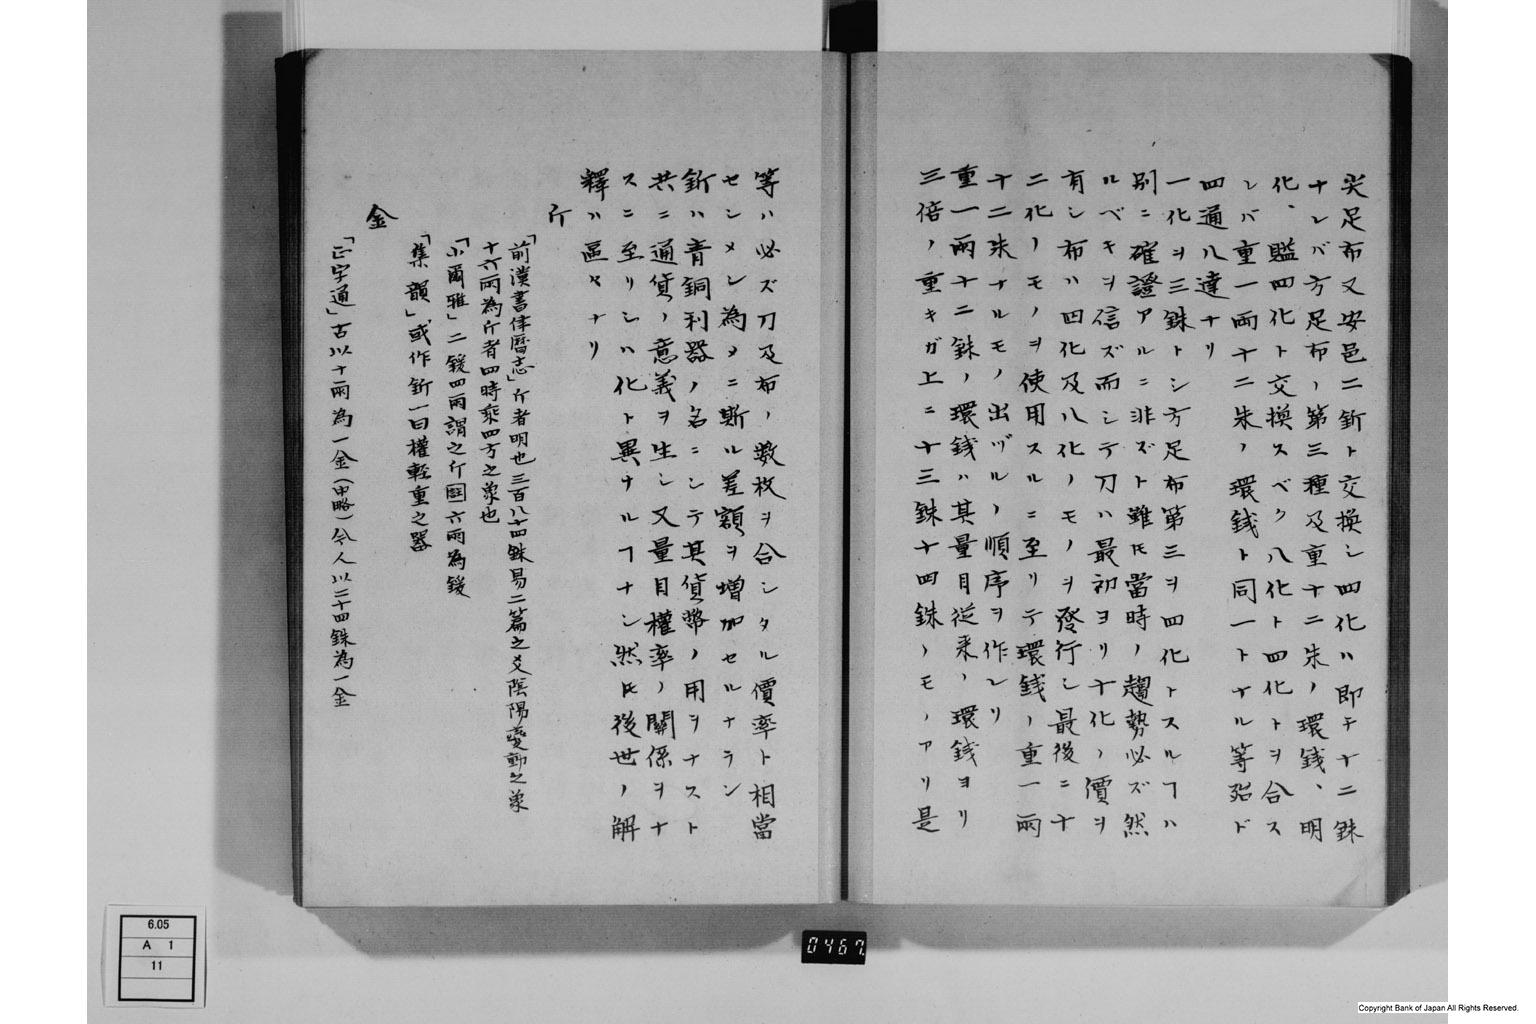 尖足布又安邑二釿ト交換シ四化ハ即チ十二銖
ナレバ方足布ノ第三種及重十二朱ノ環銭、明
化、賹四化ト交換スベク八化ト四化トヲ合ス
レバ重一兩十二朱ノ環銭ト同一トナル等殆ド
四通八達ナリ
一化ヲ三銖トシ方足布第三ヲ四化トスルヿハ
別ニ確證アルニ非ズト雖𪜈當時ノ趨勢必ズ然
ルベキヲ信ズ而シテ刀ハ最初ヨリ十化ノ價ヲ
有シ布ハ四化及八化ノモノヲ發行シ最後ニ十
二化ノモノヲ使用スルニ至リテ環銭ノ重一兩
十二朱ナルモノ出ヅルノ順序ヲ作レリ
重一兩十二銖ノ環銭ハ其量目従来ノ環銭ヨリ
三倍ノ重キガ上ニ十三銖十四銖ノモノアリ是
等ハ必ズ刀及布ノ數枚ヲ合シタル價率ト相當
セシメン為メニ斯ル差額ヲ増加セルナラン
釿ハ青銅利器ノ名ニシテ其貨幣ノ用ヲナスト
共ニ通貨ノ意義ヲ生シ又量目權率ノ關係ヲナ
スニ至リシハ化ト異ナルヿナシ然𪜈後世ノ解
釋ハ區々ナリ
斤
「前漢書律暦志」斤者明也三百八十四銖易二篇之爻陰陽變動之象
十六兩為斤者四時乘四方之象也
「小爾雅」二鍰四兩謂之斤國六兩為鍰
「集韻」或作釿一曰權輕重之器
金
「正字通」古以十一兩為一金(中略)今人以二十四銖為一金
6.05
A 1
11
0467
Copyright Bank of Japan All Rights Reserved.